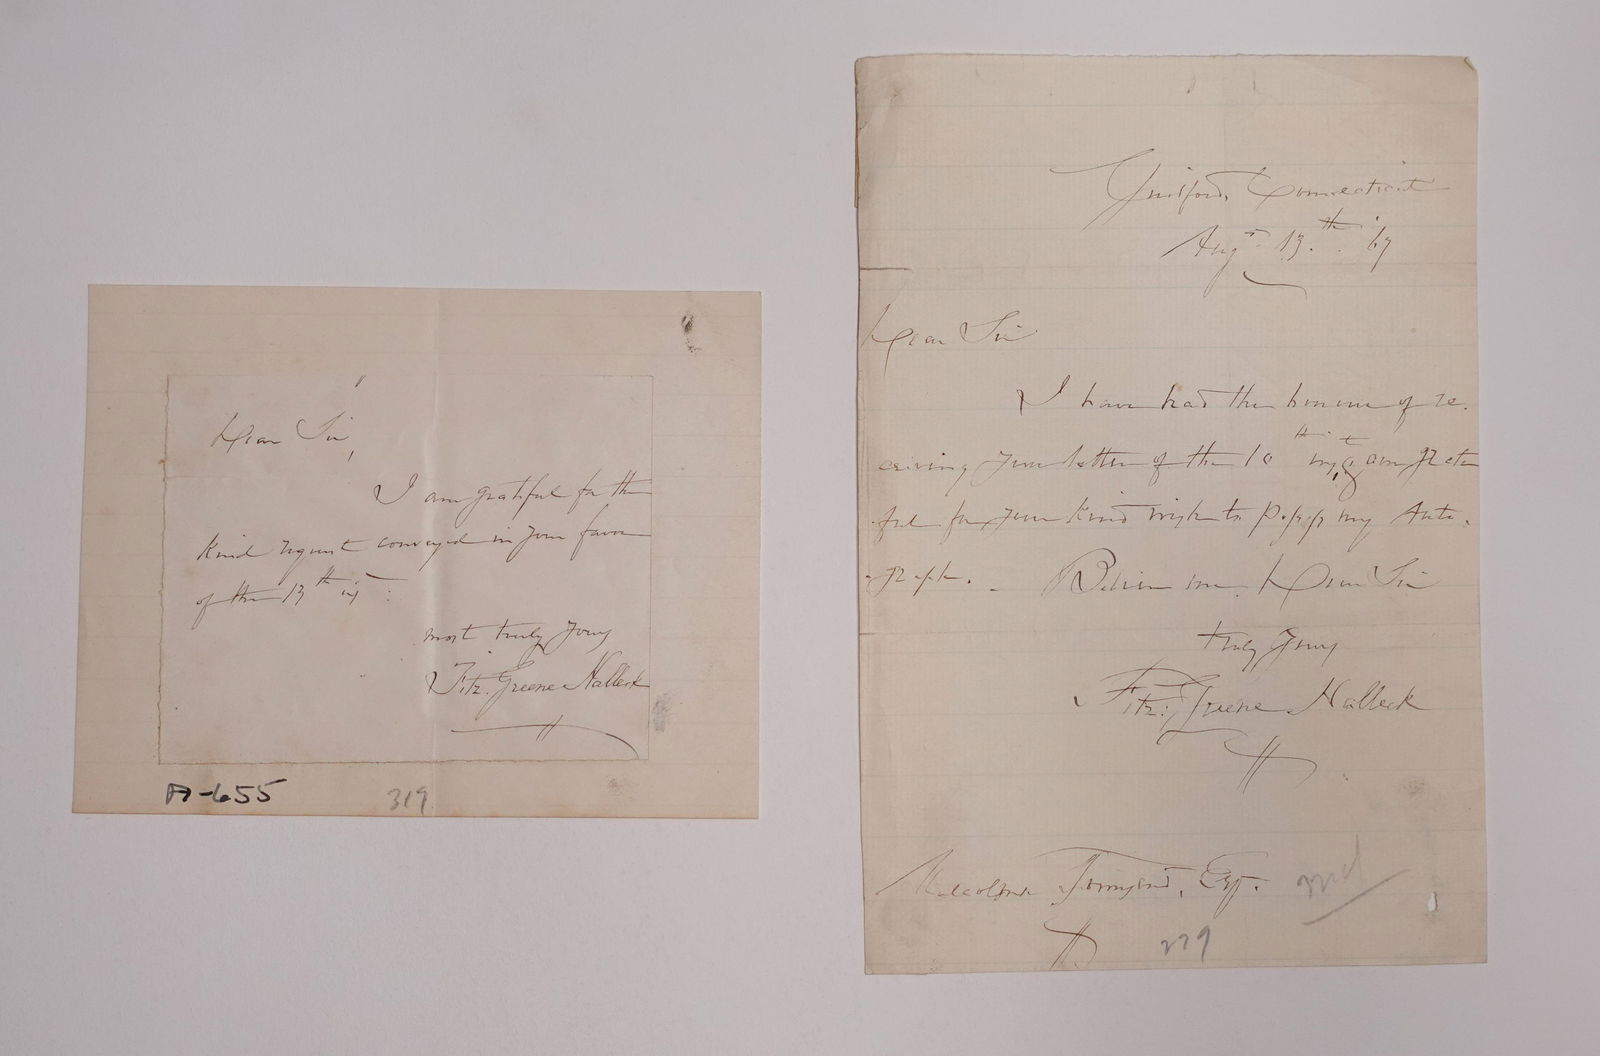 Dear Sir,
I am grateful for the
kind request conveyed in your favor
of the 13th inst:
most truly yours
Fitz-Greene Halleck
A-655
319
Guilford, Connecticut
Augt 13th. '67
Dear Sir
I have had the honour of re-
ceiving your letter of the 10th inst, & am grate
ful for your kind wish to possess my Auto-
graph. Believe me, Dear Sir
truly yours
Fitz-Greene Halleck
Malcolm Townsend, Esq.
229